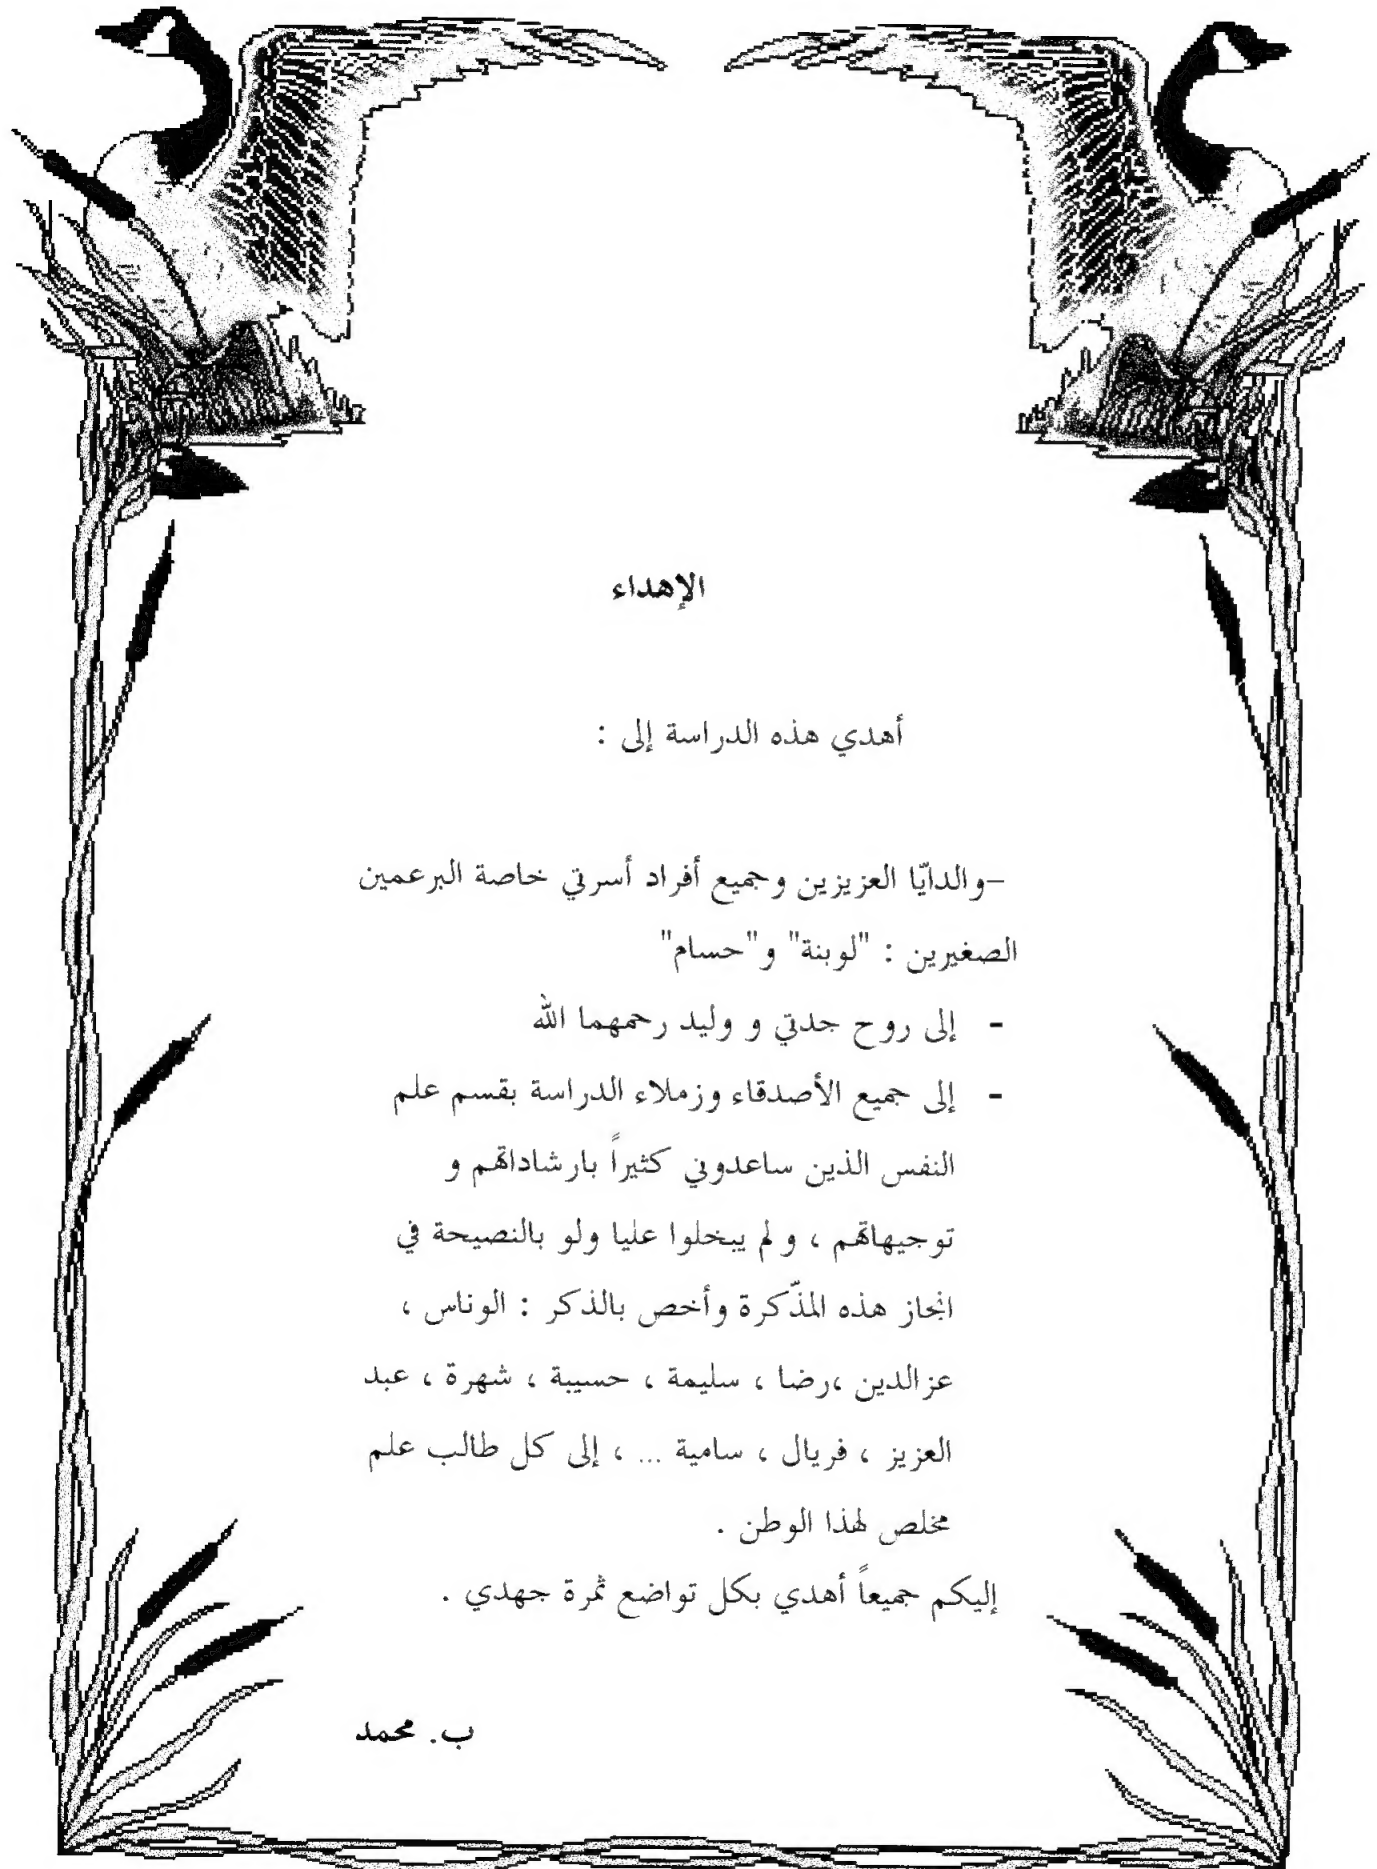 الإهداء
أهدي هذه الدراسة إلى :
-والدايّا العزيزين وجميع أفراد أسرتي خاصة البرعمين
الصغيرين : "لوبنة" و"حسام"
- إلى روح جدتي و وليد رحمهما الله
- إلى جميع الأصدقاء وزملاء الدراسة بقسم علم
النفس الذين ساعدوني كثيراً بارشاداتهم و
توجيهاتهم ، و لم يبخلوا عليا ولو بالنصيحة في
انجاز هذه المذّكرة وأخص بالذكر : الوناس ،
عزالدين ،رضا ، سليمة ، حسيبة ، شهرة ، عبد
العزيز ، فريال ، سامية ... ، إلى كل طالب علم
مخلص لهذا الوطن .
إليكم جميعاً أهدي بكل تواضع ثمرة جهدي .
ب. محمد